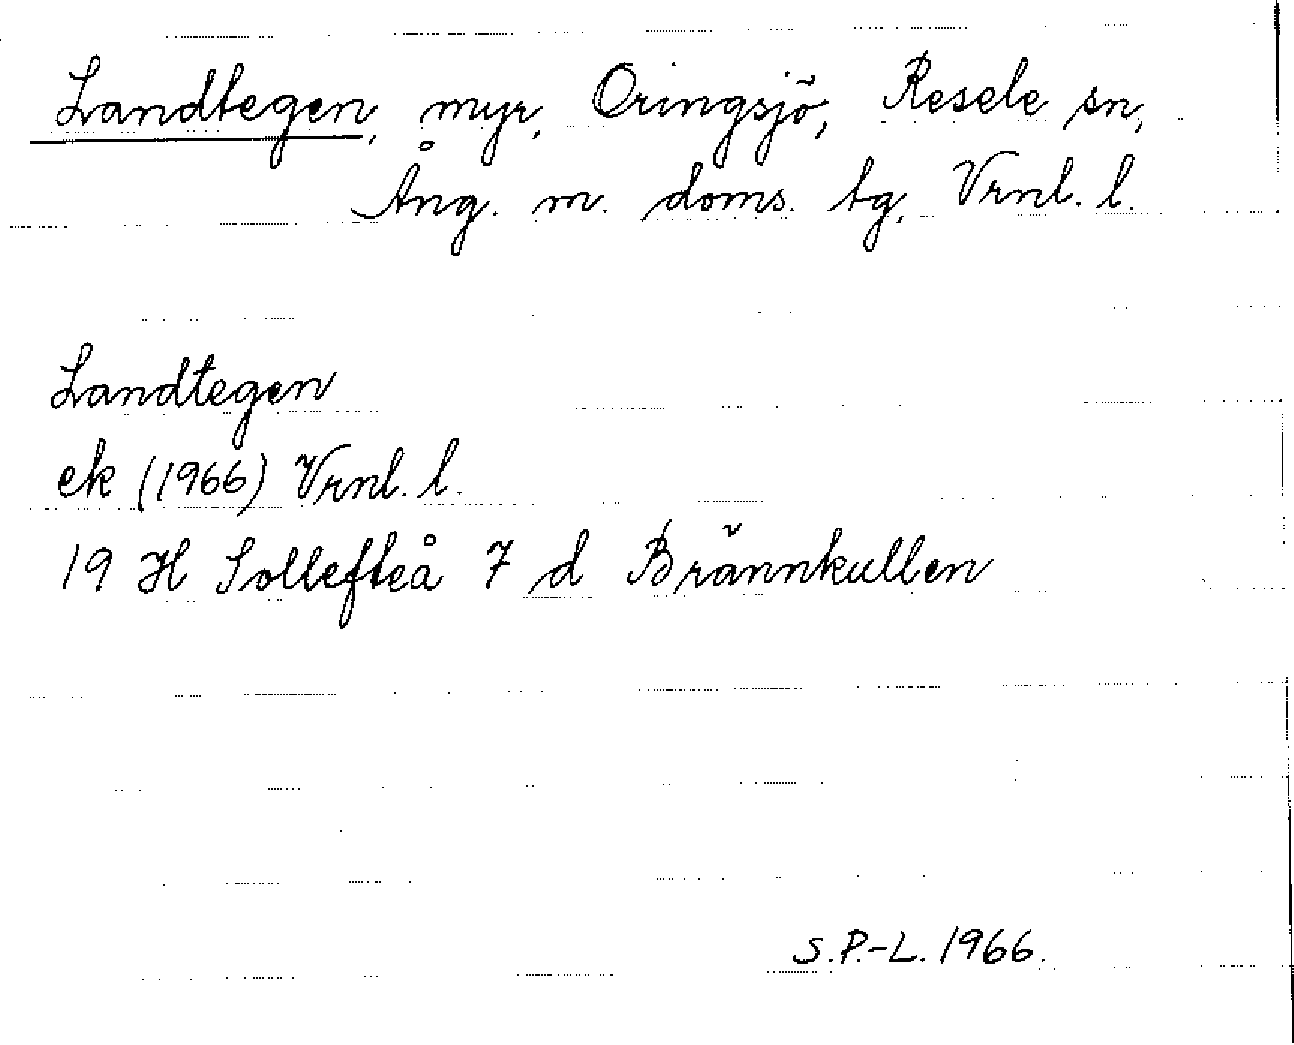 Landtegen, myr, Oringsjö, Resele sn,
Ång. m. doms. tg, Vrnl. l.
Landtegen
ek (1966) Vrnl. l.
19 H Sollefteå 7 d Brännkullen
S.P.-L. 1966.